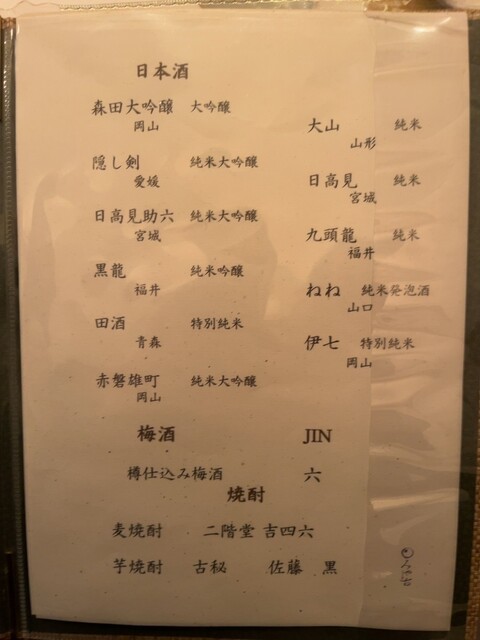 日本酒
森田大吟醸 大吟醸
岡山
隠し剣 純米大吟醸
愛媛
日高見助六 純米大吟醸
宮城
黒龍 純米吟醸
福井
田酒 特別純米
青森
赤磐雄町 純米大吟醸
岡山
大山 純米
山形
日高見 純米
宮城
九頭龍 純米
福井
ねね 純米発泡酒
山口
伊七 特別純米
岡山
梅酒
樽仕込み梅酒
JIN
六
焼酎
麦焼酎 二階堂 吉四六
芋焼酎 古秘 佐藤 黒